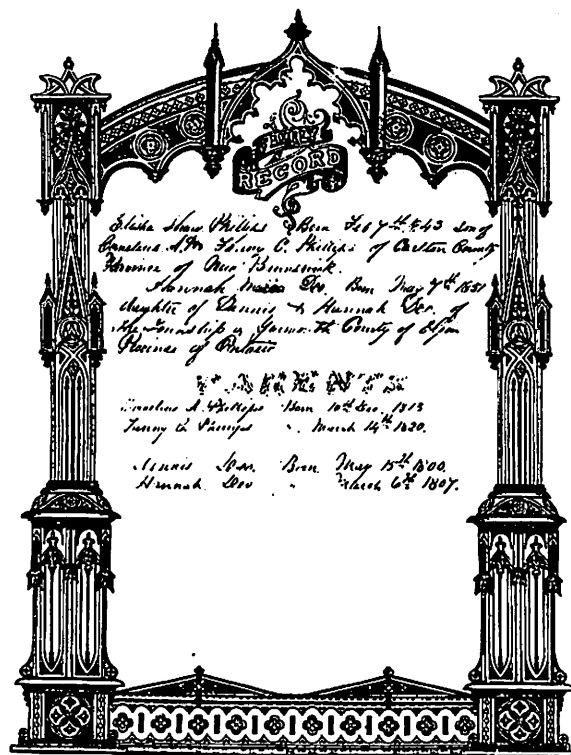 FAMILY
RECORD
Elisha Shaw Phillips Born Feb 7th 1843 Son of
Cornelius A. & Fanny C. Phillips of Carleton County
Province of New Brunswick.
Hannah Dev. Born May 7th 1851
daughter of Dennis & Hannah Dev. of
the Township of Yarmouth County of Elgin
Province of Ontario
PARENTS
Cornelius A. Phillips Born 10th Dec. 1813
Fanny C Phillips " March 14th 1820.
Dennis Dev. Born May 15th 1800.
Hannah Dev " March 6th 1807.